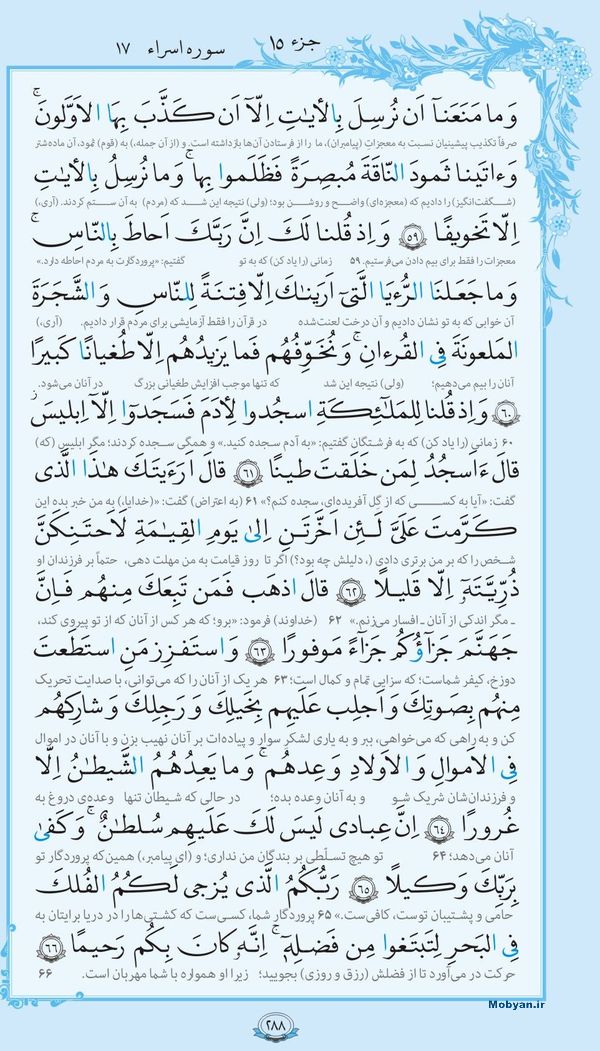 جزء ۱۵
سوره اسراء ۱۷
وَ ما مَنَعَنآ اَن نُرسِلَ بِالأياتِ اِلّآ اَن كَذَّبَ بِهَا الاَوَّلونَ ۚ
صرفاً تکذیب پیشینیان نسبت به معجزاتِ (پیامبران)، ما را از فرستادن آن‌ها بازداشته است. و (از آن جمله،) به (قوم) ثمود، آن ماده‌شتر
وَ ءاتَينا ثَمودَ النّاقَةَ مُبصِرَةً فَظَلَموا بِها ۚ وَ ما نُرسِلُ بِالأياتِ
(شگفت‌انگیز) را دادیم که (معجزه‌ای) واضح و روشن بود؛ (ولی) نتیجه این شد که (مردم) به آن ستم کردند. (آری،)
اِلّا تَخويفًا ۵۹ وَ اِذ قُلنا لَكَ اِنَّ رَبَّكَ اَحاطَ بِالنّاسِ ۚ
معجزات را فقط برای بیم دادن می‌فرستیم. ۵۹ زمانی (را یاد کن) که به تو گفتیم: «پروردگارت به مردم احاطه دارد.»
وَ ما جَعَلنَا الرُّءيَا الَّتی اَرَيناكَ اِلّا فِتنَةً لِلنّاسِ وَ الشَّجَرَةَ
آن خوابی که به تو نشان دادیم و آن درخت لعنت‌شده در قرآن را فقط آزمایشی برای مردم قرار دادیم. (آری،)
المَلعونَةَ فِی القُرءانِ ۚ وَ نُخَوِّفُهُم فَما يَزيدُهُم اِلّا طُغيانًا كَبيرًا
آنان را بیم می‌دهیم؛ (ولی) نتیجه این شد که تنها موجب افزایش طغیانی بزرگ در آنان می‌شود.
۶۰ وَ اِذ قُلنا لِلمَلائِكَةِ اسجُدوا لِأدَمَ فَسَجَدوا اِلّآ اِبليسَ
۶۰ زمانی (را یاد کن) که به فرشتگان گفتیم: «به آدم سجده کنید.» و همگی سجده کردند؛ مگر ابلیس (که)
قالَ ءَاَسجُدُ لِمَن خَلَقتَ طينًا ۶۱ قالَ اَرَءَيتَكَ هٰذَا الَّذی
گفت: «آیا به کسی که از گِل آفریده‌ای، سجده کنم؟» ۶۱ (به اعتراض) گفت: «(خدایا)، به من خبر بده این
كَرَّمتَ عَلَیَّ لَئِن اَخَّرتَنِ اِلیٰ يَومِ القِيامَةِ لَاَحتَنِكَنَّ
شخص را که بر من برتری دادی (، دلیلش چه بود؟) اگر تا روز قیامت به من مهلت دهی، حتماً بر فرزندان او
ذُرِّيَّتَهٗ اِلّا قَليلًا ۶۲ قالَ اذهَب فَمَن تَبِعَكَ مِنهُم فَاِنَّ
ـ مگر اندکی از آنان ـ افسار می‌زنم.» ۶۲ (خداوند) فرمود: «برو؛ که هر کس از آنان که از تو پیروی کند،
جَهَنَّمَ جَزآؤُكُم جَزآءً مَوفورًا ۶۳ وَ استَفزِز مَنِ استَطَعتَ
دوزخ، کیفر شماست؛ که سزایی تمام و کمال است؛ ۶۳ هر یک از آنان را که می‌توانی، با صدایت تحریک
مِنهُم بِصَوتِكَ وَ اَجلِب عَلَيهِم بِخَيلِكَ وَ رَجِلِكَ وَ شارِكهُم
کن و به راهی که می‌خواهی، ببر و به یاری لشکر سوار و پیاده‌ات بر آنان نهیب بزن و با آنان در اموال
فِی الاَموالِ وَ الاَولادِ وَ عِدهُم ۚ وَ ما يَعِدُهُمُ الشَّيطٰنُ اِلّا
و فرزندانشان شریک شو و به آنان وعده بده؛ در حالی که شیطان تنها وعده‌ی دروغ به
غُرورًا ۶۴ اِنَّ عِبادی لَيسَ لَكَ عَلَيهِم سُلطٰنٌ ۚ وَ كَفیٰ
آنان می‌دهد؛ ۶۴ تو هیچ تسلّطی بر بندگان من نداری؛ و (ای پیامبر،) همین‌که پروردگار تو
بِرَبِّكَ وَكيلًا ۶۵ رَبُّكُمُ الَّذی يُزجی لَكُمُ الفُلكَ
حامی و پشتیبان توست، کافی‌ست.» ۶۵ پروردگار شما، کسی‌ست که کشتی‌ها را در دریا برایتان به
فِی البَحرِ لِتَبتَغوا مِن فَضلِهٖ ۚ اِنَّهٗ كانَ بِكُم رَحيمًا ۶۶
حرکت در می‌آورد تا از فضلش (رزق و روزی) بجویید؛ زیرا او همواره با شما مهربان است. ۶۶
Mobyan.ir
۲۸۸